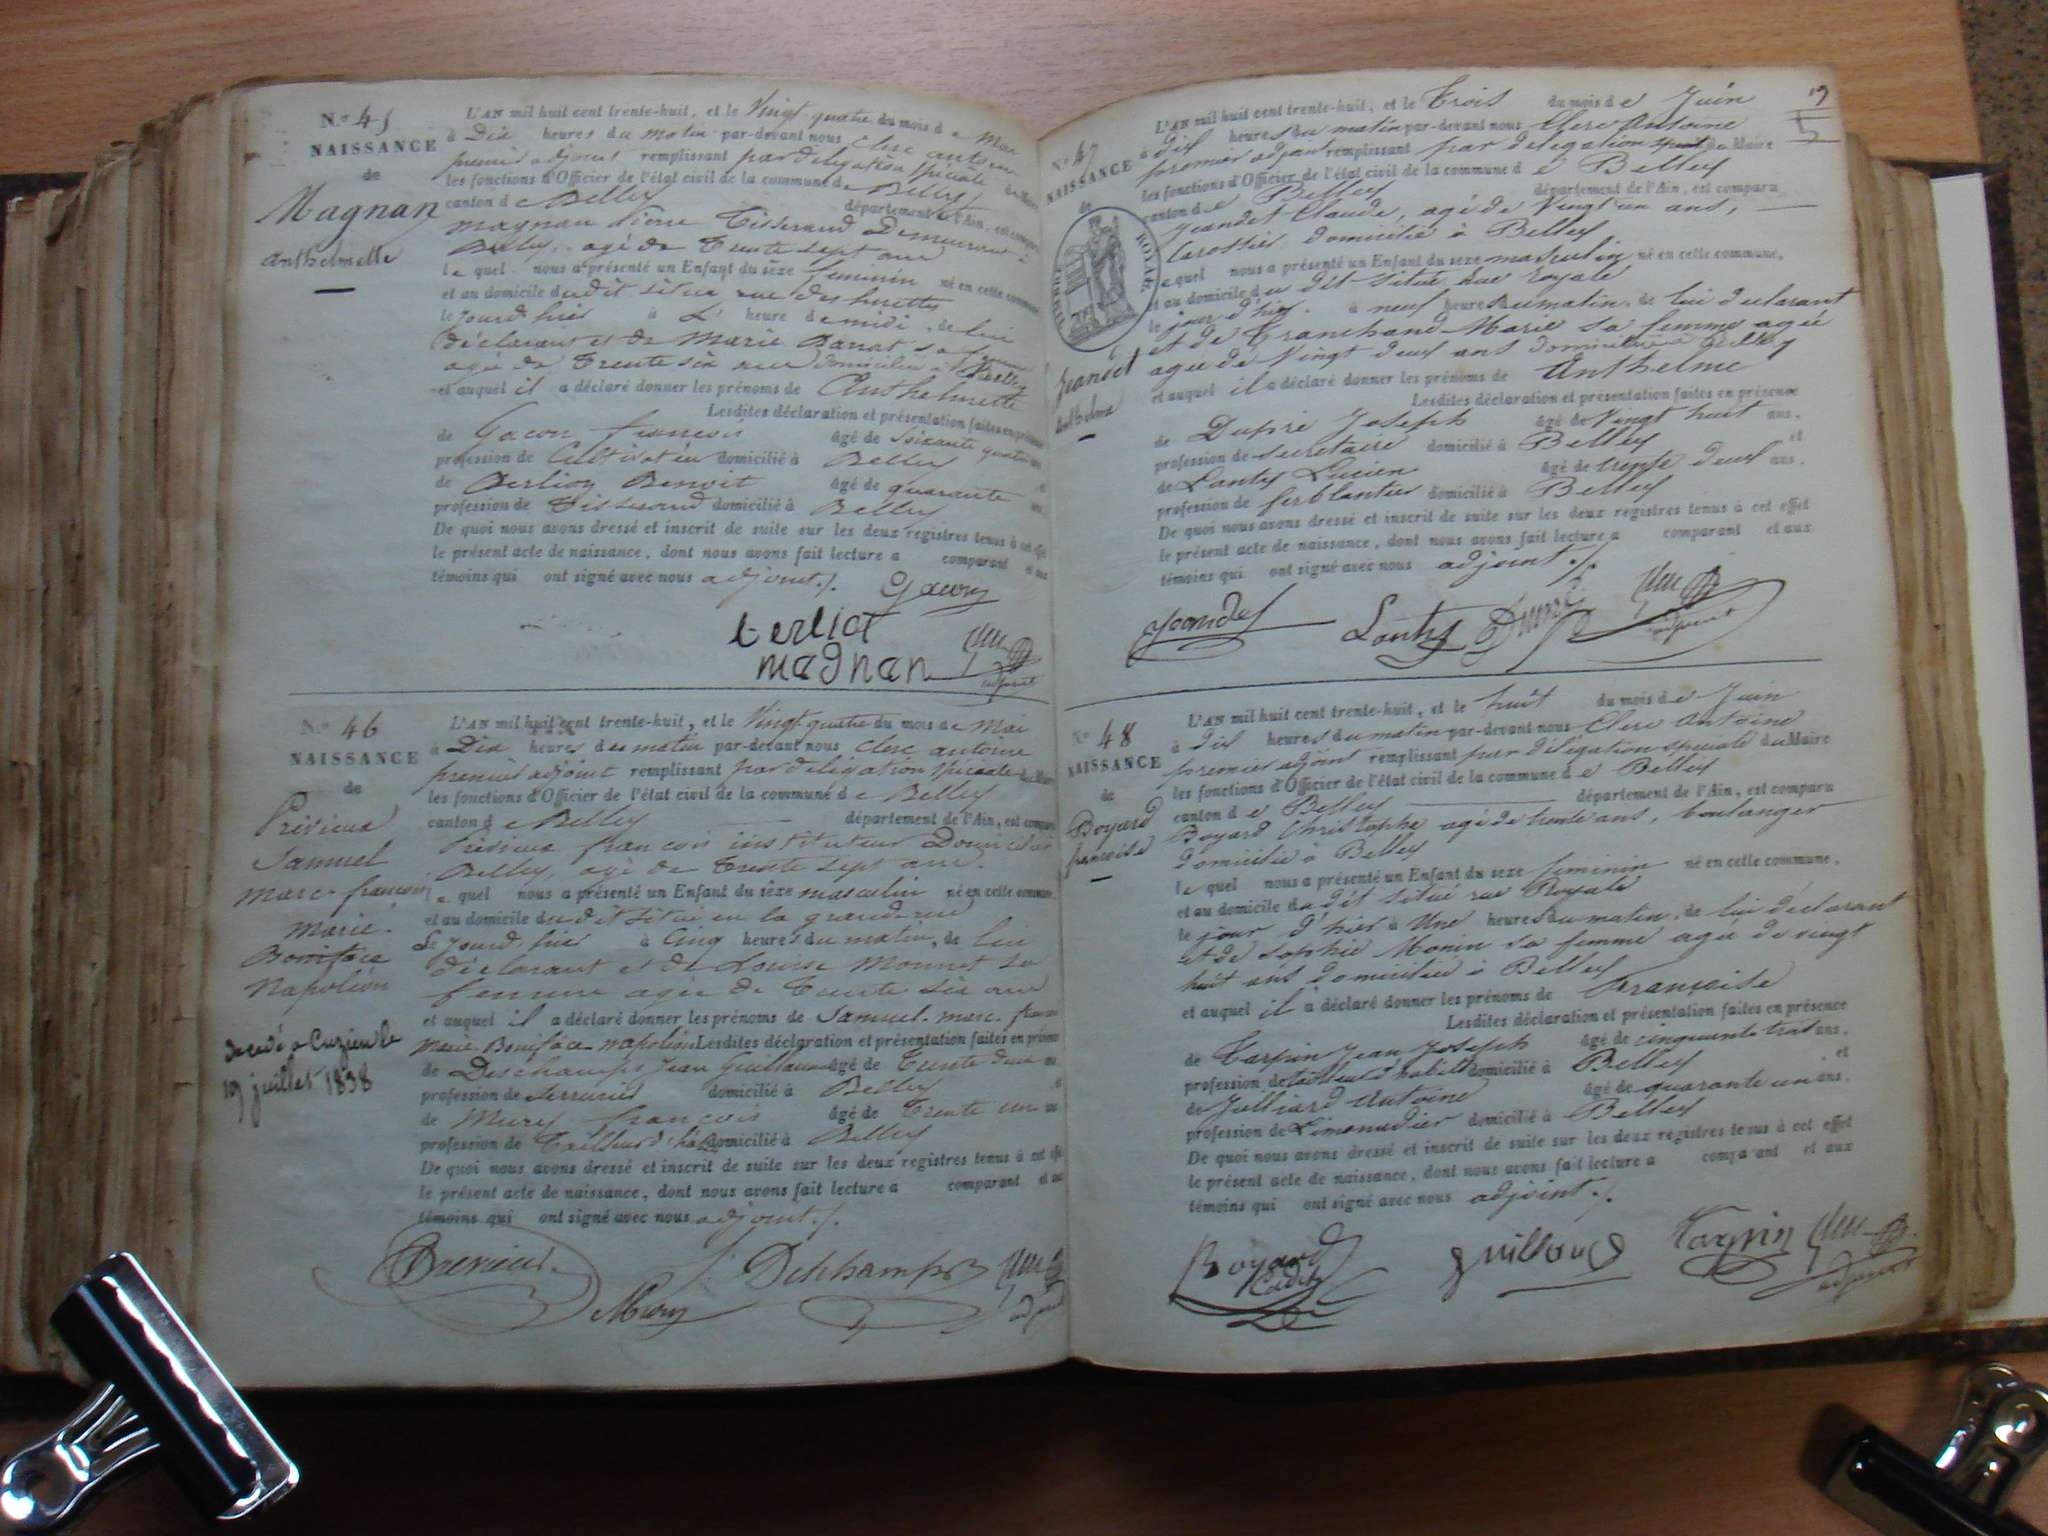 N.° 45
NAISSANCE
de
Magnan
anthelmette
L'AN mil huit cent trente-huit, et le Vingt quatre du mois de Mai
à Dix heures du matin par-devant nous Clerc antoine
premier adjoint remplissant par délégation spéciale du Maire
les fonctions d'Officier de l'état civil de la commune de Belley
canton de Belley département de l'Ain, est comparu
magnan Pierre Tisserand Demeurant à
Belley, agé de Trente sept ans
lequel nous a présenté un Enfant du sèxe feminin né en cette commune
et au domicile dudit situé rue des
le jourd'hier à L' heure de midi, de lui
déclarant et de Marie Barrat sa femme
agée de Trente six ans domiciliée à Belley
et auquel il a déclaré donner les prénoms de Anthelmette
Lesdites déclaration et présentation faites en présence
de Gacon françois âgé de soixante quatre ans
profession de Cultivateur domicilié à Belley
de Berlion Benoit âgé de quarante
profession de Tisserand domicilié à Belley
De quoi nous avons dressé et inscrit de suite sur les deux registres tenus à cet effet
le présent acte de naissance, dont nous avons fait lecture a comparant et aux
témoins qui ont signé avec nous adjoint./.
Gacon
berliot
magnan
adjoint
N.° 46
NAISSANCE
de
Prévieux
Samuel
marc françois
marie
Boniface
Napoléon
décédé à Cuzieu le
19 juillet 1838
L'AN mil huit cent trente-huit, et le Vingt quatre du mois de Mai
à Dix heures du matin par-devant nous Clerc antoine
premier adjoint remplissant par délégation spéciale du Maire
les fonctions d'Officier de l'état civil de la commune de Belley
canton de Belley département de l'Ain, est comparu
Prévieux françois instituteur Domicilié à
Belley, agé de Trente sept ans.
lequel nous a présenté un Enfant du sèxe masculin né en cette commune
et au domicile dudit situé en la grande rue
Le jourd'hier à Cinq heures du matin, de lui
déclarant et de Louise Monnet sa
femme agée de Trente six ans
et auquel il a déclaré donner les prénoms de Samuel. marc. françois
marie. Boniface napoléon Lesdites déclaration et présentation faites en présence
de Deschamps Jean Guillaume âgé de Trente deux ans
profession de serrurier domicilié à Belley
de Mury françois âgé de Trente un ans
profession de Tailleur d'habits domicilié à Belley
De quoi nous avons dressé et inscrit de suite sur les deux registres tenus à cet effet
le présent acte de naissance, dont nous avons fait lecture a comparant et aux
témoins qui ont signé avec nous adjoint./.
Prévieux
Mury
Dehhamps
adjoint
19
5
N.° 47
NAISSANCE
de
TIMBRE ROYAL
Jeandet
Anthelme
L'AN mil huit cent trente-huit, et le Trois du mois de Juin
à dix heures du matin par-devant nous Clerc Antoine
premier adjoint remplissant par délégation du Maire
les fonctions d'Officier de l'état civil de la commune de Belley
canton de Belley département de l'Ain, est comparu
Jeandet Claude, agé de Vingt un ans,
Carossier domicilié à Belley
lequel nous a présenté un Enfant du sexe masculin né en cette commune,
et au domicile du dit situé rue Royale
le jour d'hier à neuf heures du matin, de lui déclarant
et de Tranchand Marie sa femme agée
agée de Vingt deux ans domiciliée à Belley
et auquel il a déclaré donner les prénoms de Anthelme
Lesdites déclaration et présentation faites en présence
de Dupré Joseph âgé de Vingt huit ans,
profession de secrétaire domicilié à Belley et
de Lantz Lucien âgé de trente deux ans,
profession de ferblantier domicilié à Belley
De quoi nous avons dressé et inscrit de suite sur les deux registres tenus à cet effet
le présent acte de naissance, dont nous avons fait lecture a comparant et aux
témoins qui ont signé avec nous adjoint./.
Jeandet
Lantz
Dupré
adjoint
N.° 48
NAISSANCE
de
Boyard
françoise
L'AN mil huit cent trente-huit, et le huit du mois de Juin
à dix heures du matin par-devant nous Clerc Antoine
premier adjoint remplissant par délégation spéciale du Maire
les fonctions d'Officier de l'état civil de la commune de Belley
canton de Belley département de l'Ain, est comparu
Boyard Christophe agé de trente ans, boulanger
domicilié à Belley
lequel nous a présenté un Enfant du sèxe feminin né en cette commune,
et au domicile du dit situé rue Royale
le jour d'hier à Une heures du matin, de lui déclarant
et de sophie Monin sa femme agée de vingt
huit ans domiciliée à Belley
et auquel il a déclaré donner les prénoms de Françoise
Lesdites déclaration et présentation faites en présence
de Tarpin Jean Joseph âgé de cinquante trois ans,
profession de tailleur d'habits domicilié à Belley et
de Julliard Antoine âgé de quarante un ans,
profession de Limonadier domicilié à Belley
De quoi nous avons dressé et inscrit de suite sur les deux registres tenus à cet effet
le présent acte de naissance, dont nous avons fait lecture a comparant et aux
témoins qui ont signé avec nous adjoint./.
Boyard
Cadet
Tarpin
adjoint